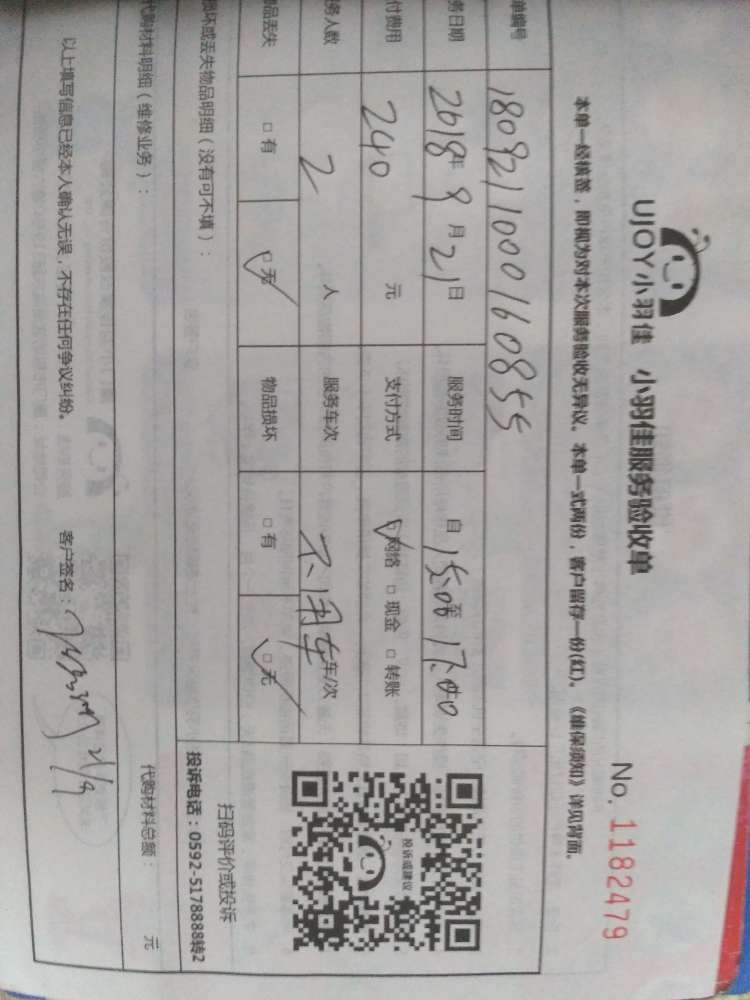 UJOY小羽佳 小羽佳服务验收单
No. 1182479
本单一经核签，即视为对本次服务验收无异议。本单一式两份，客户留存一份(红)。《维保须知》详见背面。
单编号 180921100016085 5
务日期 2018年9月21日 服务时间 自 至
付费用 240 元 支付方式 □网络 □现金 □转账
务人数 2 人 服务车次 不用车 车/次
物品丢失 □有 □无 物品损坏 □有 □无
损坏或丢失物品明细（没有可不填）：
代购材料明细（维修业务）：
代购材料总额： 元
投诉或建议
扫码评价或投诉
投诉电话：0592-5178888转2
以上填写信息已经本人确认无误，不存在任何争议纠纷。 客户签名： 21/9